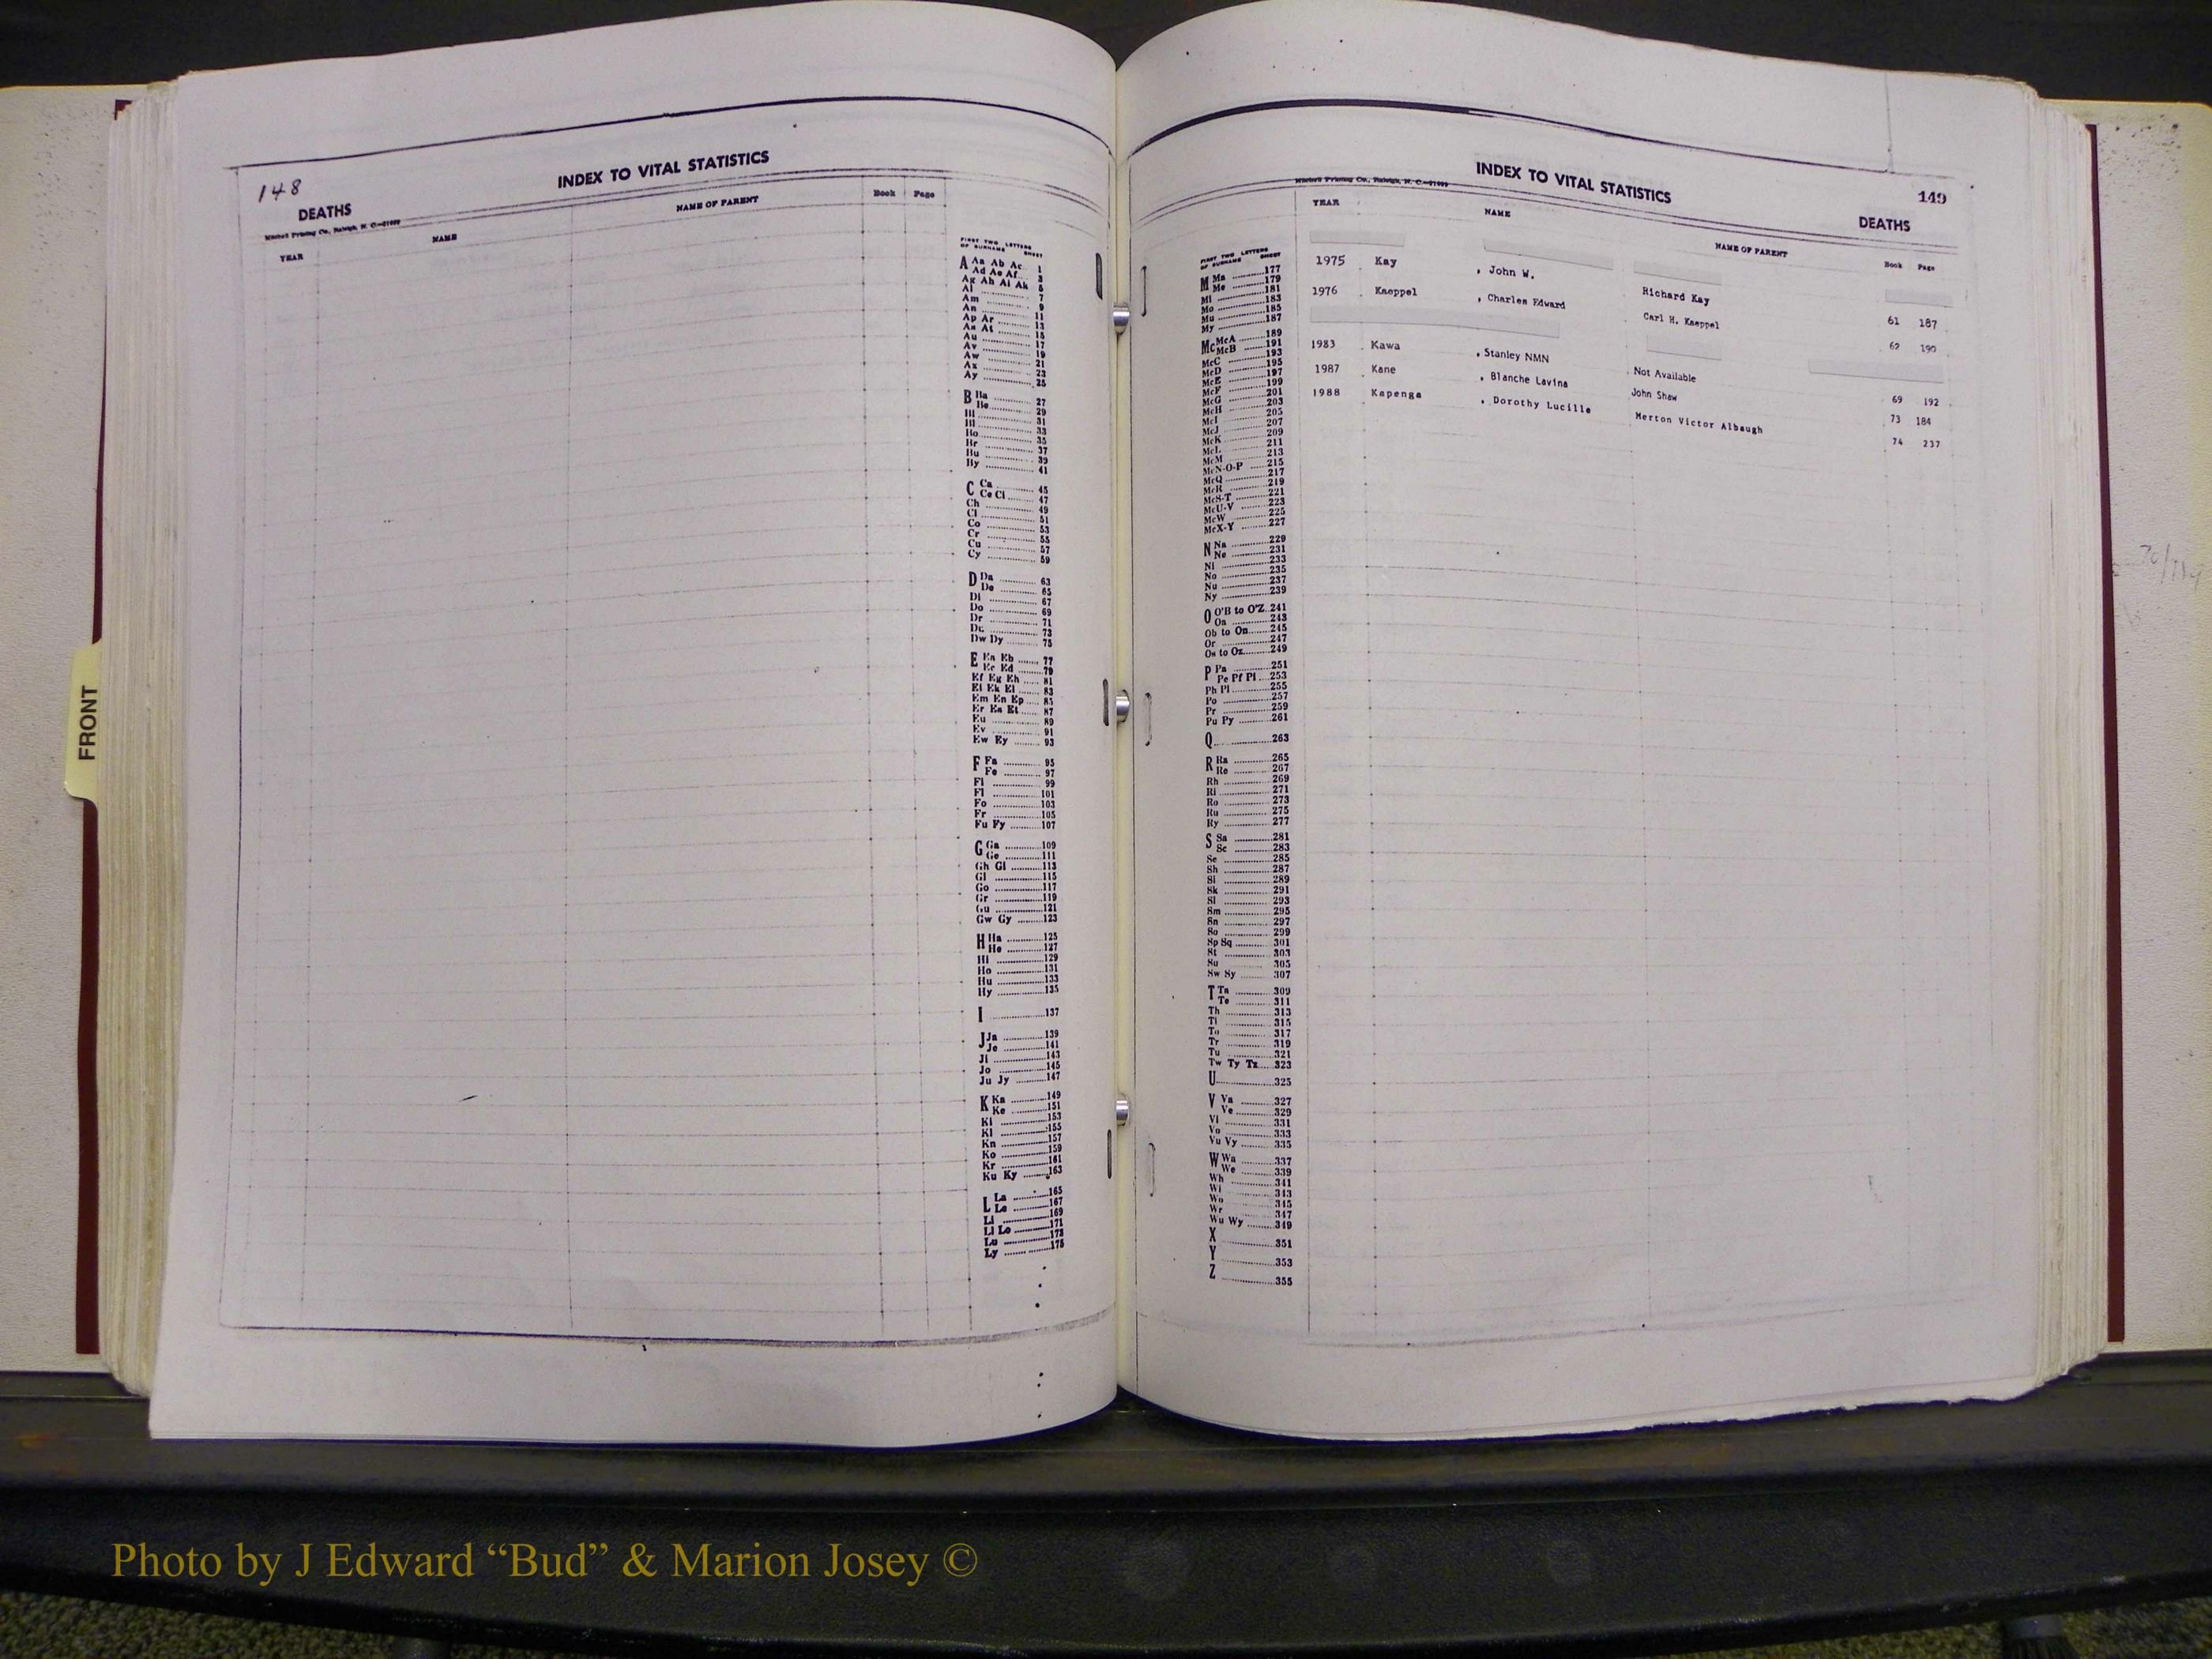 148
INDEX TO VITAL STATISTICS
DEATHS
Mitchell Printing Co., Raleigh, N. C.
YEAR NAME NAME OF PARENT Book Page
FIRST TWO LETTERS
OF SURNAME SHEET
A Aa Ab Ac 1
Ad Ae Af 3
Ag Ah Ai Ak 5
Al 7
Am 9
An 11
Ap Ar 13
As At 15
Au 17
Av 19
Aw 21
Ax 23
Ay 25
B Ba 27
Be 29
Bi 31
Bl 33
Bo 35
Br 37
Bu 39
By 41
C Ca 45
Ce Ci 47
Ch 49
Cl 51
Co 53
Cr 55
Cu 57
Cy 59
D Da 63
De 65
Di 67
Do 69
Dr 71
Du 73
Dw Dy 75
E Ea Eb 77
Ec Ed 79
Ef Eg Eh 81
Ei Ek El 83
Em En Ep 85
Er Es Et 87
Eu 89
Ev 91
Ew Ey 93
F Fa 95
Fe 97
Fi 99
Fl 101
Fo 103
Fr 105
Fu Fy 107
G Ga 109
Ge 111
Gh Gi 113
Gl 115
Go 117
Gr 119
Gu 121
Gw Gy 123
H Ha 125
He 127
Hi 129
Ho 131
Hu 133
Hy 135
I 137
J Ja 139
Je 141
Ji 143
Jo 145
Ju Jy 147
K Ka 149
Ke 151
Ki 153
Kl 155
Kn 157
Ko 159
Kr 161
Ku Ky 163
L La 165
Le 167
Li 169
Ll Lo 171
Lu 173
Ly 175
FRONT
INDEX TO VITAL STATISTICS
149
Mitchell Printing Co., Raleigh, N. C.
DEATHS
YEAR NAME NAME OF PARENT Book Page
1975 Kay , John W. Richard Kay 61 187
1976 Kaeppel , Charles Edward Carl H. Kaeppel 62 190
1983 Kawa , Stanley NMN Not Available 69 192
1987 Kane , Blanche Lavina John Shaw 73 184
1988 Kapenga , Dorothy Lucille Merton Victor Albaugh 74 237
FIRST TWO LETTERS
OF SURNAME SHEET
M Ma 177
Me 179
Mi 181
Mo 183
Mu 185
My 187
Mc McA 189
McB 191
McC 193
McD 195
McE 197
McF 199
McG 201
McH 203
McI 205
McJ 207
McK 209
McL 211
McM 213
McN-O-P 215
McQ 217
McR 219
McS-T 221
McU-V 223
McW 225
McX-Y 227
N Na 229
Ne 231
Ni 233
No 235
Nu 237
Ny 239
O O'B to O'Z 241
Oa 243
Ob to On 245
Or 247
Os to Oz 249
P Pa 251
Pe Pf Pi 253
Ph Pl 255
Po 257
Pr 259
Pu Py 261
Q 263
R Ra 265
Re 267
Rh 269
Ri 271
Ro 273
Ru 275
Ry 277
S Sa 281
Sc 283
Se 285
Sh 287
Si 289
Sk 291
Sl 293
Sm 295
Sn 297
So 299
Sp Sq 301
St 303
Su 305
Sw Sy 307
T Ta 309
Te 311
Th 313
Ti 315
To 317
Tr 319
Tu 321
Tw Ty Tz 323
U 325
V Va 327
Ve 329
Vi 331
Vo 333
Vu Vy 335
W Wa 337
We 339
Wh 341
Wi 343
Wo 345
Wr 347
Wu Wy 349
X 351
Y 353
Z 355
Photo by J Edward “Bud” & Marion Josey ©